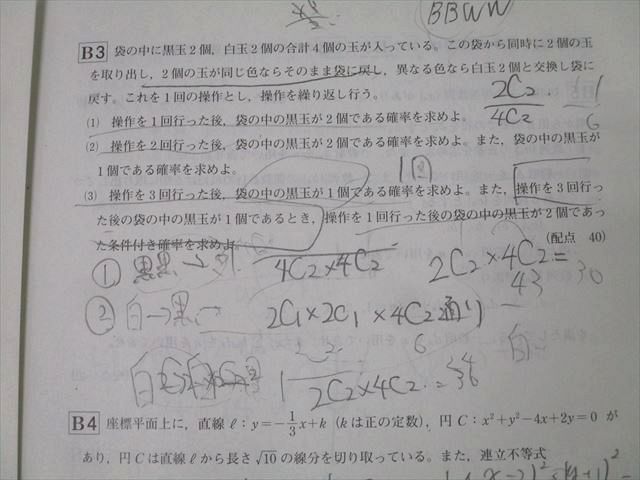 BBWW
B3 袋の中に黒玉2個，白玉2個の合計4個の玉が入っている。この袋から同時に2個の玉
を取り出し，2個の玉が同じ色ならそのまま袋に戻し，異なる色なら白玉2個と交換し袋に
戻す。これを1回の操作とし，操作を繰り返し行う。
2C2
4C2
1
6
(1) 操作を1回行った後，袋の中の黒玉が2個である確率を求めよ。
(2) 操作を2回行った後，袋の中の黒玉が2個である確率を求めよ。また，袋の中の黒玉が
1個である確率を求めよ。
1回
(3) 操作を3回行った後，袋の中の黒玉が1個である確率を求めよ。また，操作を3回行っ
た後の袋の中の黒玉が1個であるとき，操作を1回行った後の袋の中の黒玉が2個であっ
た条件付き確率を求めよ。
(配点 40)
① 黒黒→
4C2×4C2
2C2×4C2=
② 白→黒→
2C1×2C1×4C2通り
6
白
1
2C2×4C2=
36
B4 座標平面上に，直線ℓ：y=-1/3x+k（kは正の定数），円C：x²+y²-4x+2y=0 が
あり，円Cは直線ℓから長さ√10の線分を切り取っている。また，連立不等式